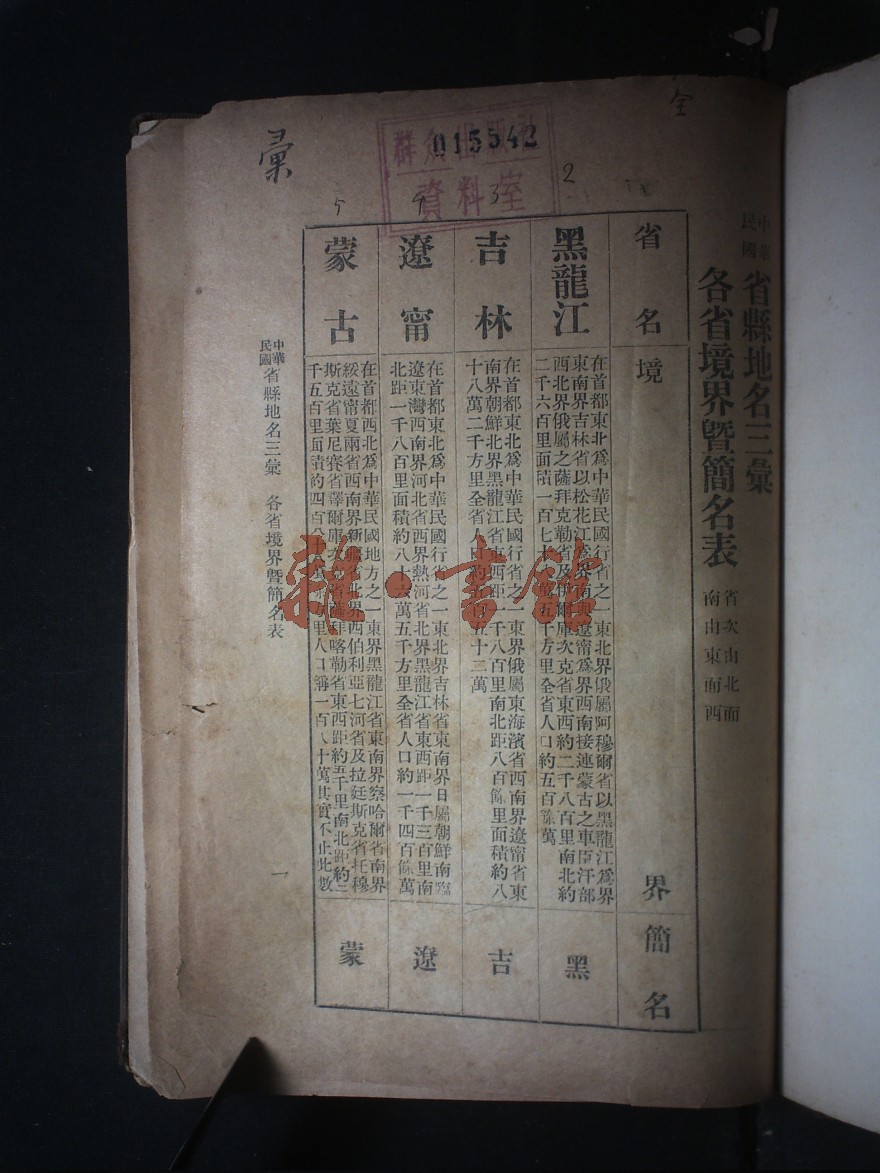 全
中華
民國
省縣地名三彙
各省境界曁簡名表
省次由北而
南由東而西
省名
境界
簡名
黑龍江
在首都東北爲中華民國行省之一東北界俄屬阿穆爾省以黑龍江爲界
東南界吉林省以松花江爲界南與遼甯爲界西南接連蒙古之車臣汗部
西北界俄屬之薩拜克勒省及伊爾庫次克省東西約二千八百里南北約
二千六百里面積一百七十萬五千方里全省人口約五百餘萬
黑
吉林
在首都東北爲中華民國行省之一東界俄屬東海濱省西南界遼甯省東
南界朝鮮北界黑龍江省東西距一千八百里南北距八百餘里面積約八
十八萬二千方里全省人口約五百五十三萬
吉
遼甯
在首都東北爲中華民國行省之一東北界吉林省東南界日屬朝鮮南臨
遼東灣西南界河北省西界熱河省北界黑龍江省東西距一千三百里南
北距一千八百里面積約八十六萬五千方里全省人口約一千四百餘萬
遼
蒙古
在首都西北爲中華民國地方之一東界黑龍江省東南界察哈爾省南界
綏遠甯夏兩省西南界新疆省北界西伯利亞七河省及拉廷斯克省托穆
斯克省葉尼賽省譯爾庫次克省薩拜喀勒省東西距約五千里南北距約三
千五百里面積約四百八十八萬方里人口稱一百八十萬其實不止此數
蒙
中華
民國
省縣地名三彙 各省境界曁簡名表
一
彙
015542
群众出版社
資料室
2
3
4
5
雜·書館